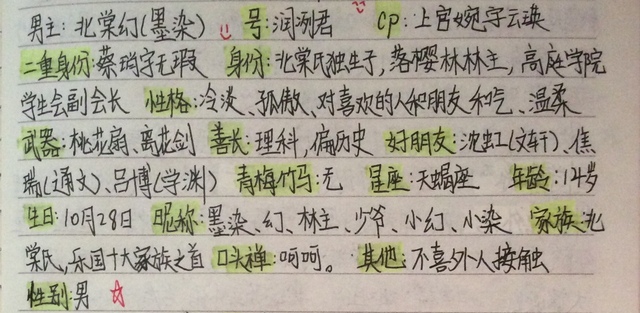 男主:北棠幻(墨染) 号:润冽君 CP:上官婉字云瑛
二重身份:蔡琑字无瑕 身份:北棠氏独生子,落樱林林主,高庭学院
学生会副会长 性格:冷淡、孤傲、对喜欢的人和朋友和气、温柔
武器:桃花扇、离花剑 善长:理科,偏历史 好朋友:沈虹(文轩)、焦
瑞(通文)、吕博(学渊) 青梅竹马:无 星座:天蝎座 年龄:14岁
生日:10月28日 昵称:墨染、幻、林主、少爷、小幻、小染 家族:北
棠氏,乐国十大家族之首 口头禅:呵呵。 其他:不喜外人接触
性别:男